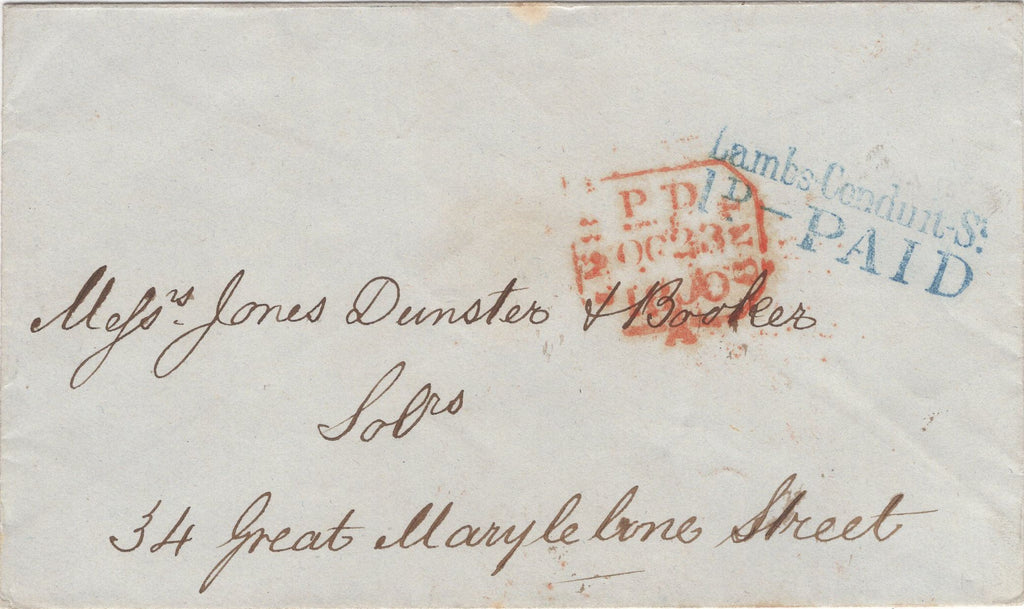 Lambs-Conduit-St.
1D—PAID
P.D
OC 23
A
Messrs. Jones Dunster & Booker
Solrs
34 Great Marylebone Street